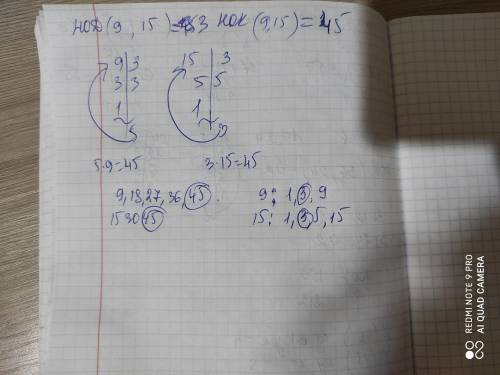 НОД(9, 15)=3 НОК(9,15)=45
9|3 15|3
3|3 5|5
1| 1|
5 3
5·9=45 3·15=45
9,18,27,36,45 9: 1,3,9
15 30 45 15: 1,3,5,15
REDMI NOTE 9 PRO
AI QUAD CAMERA